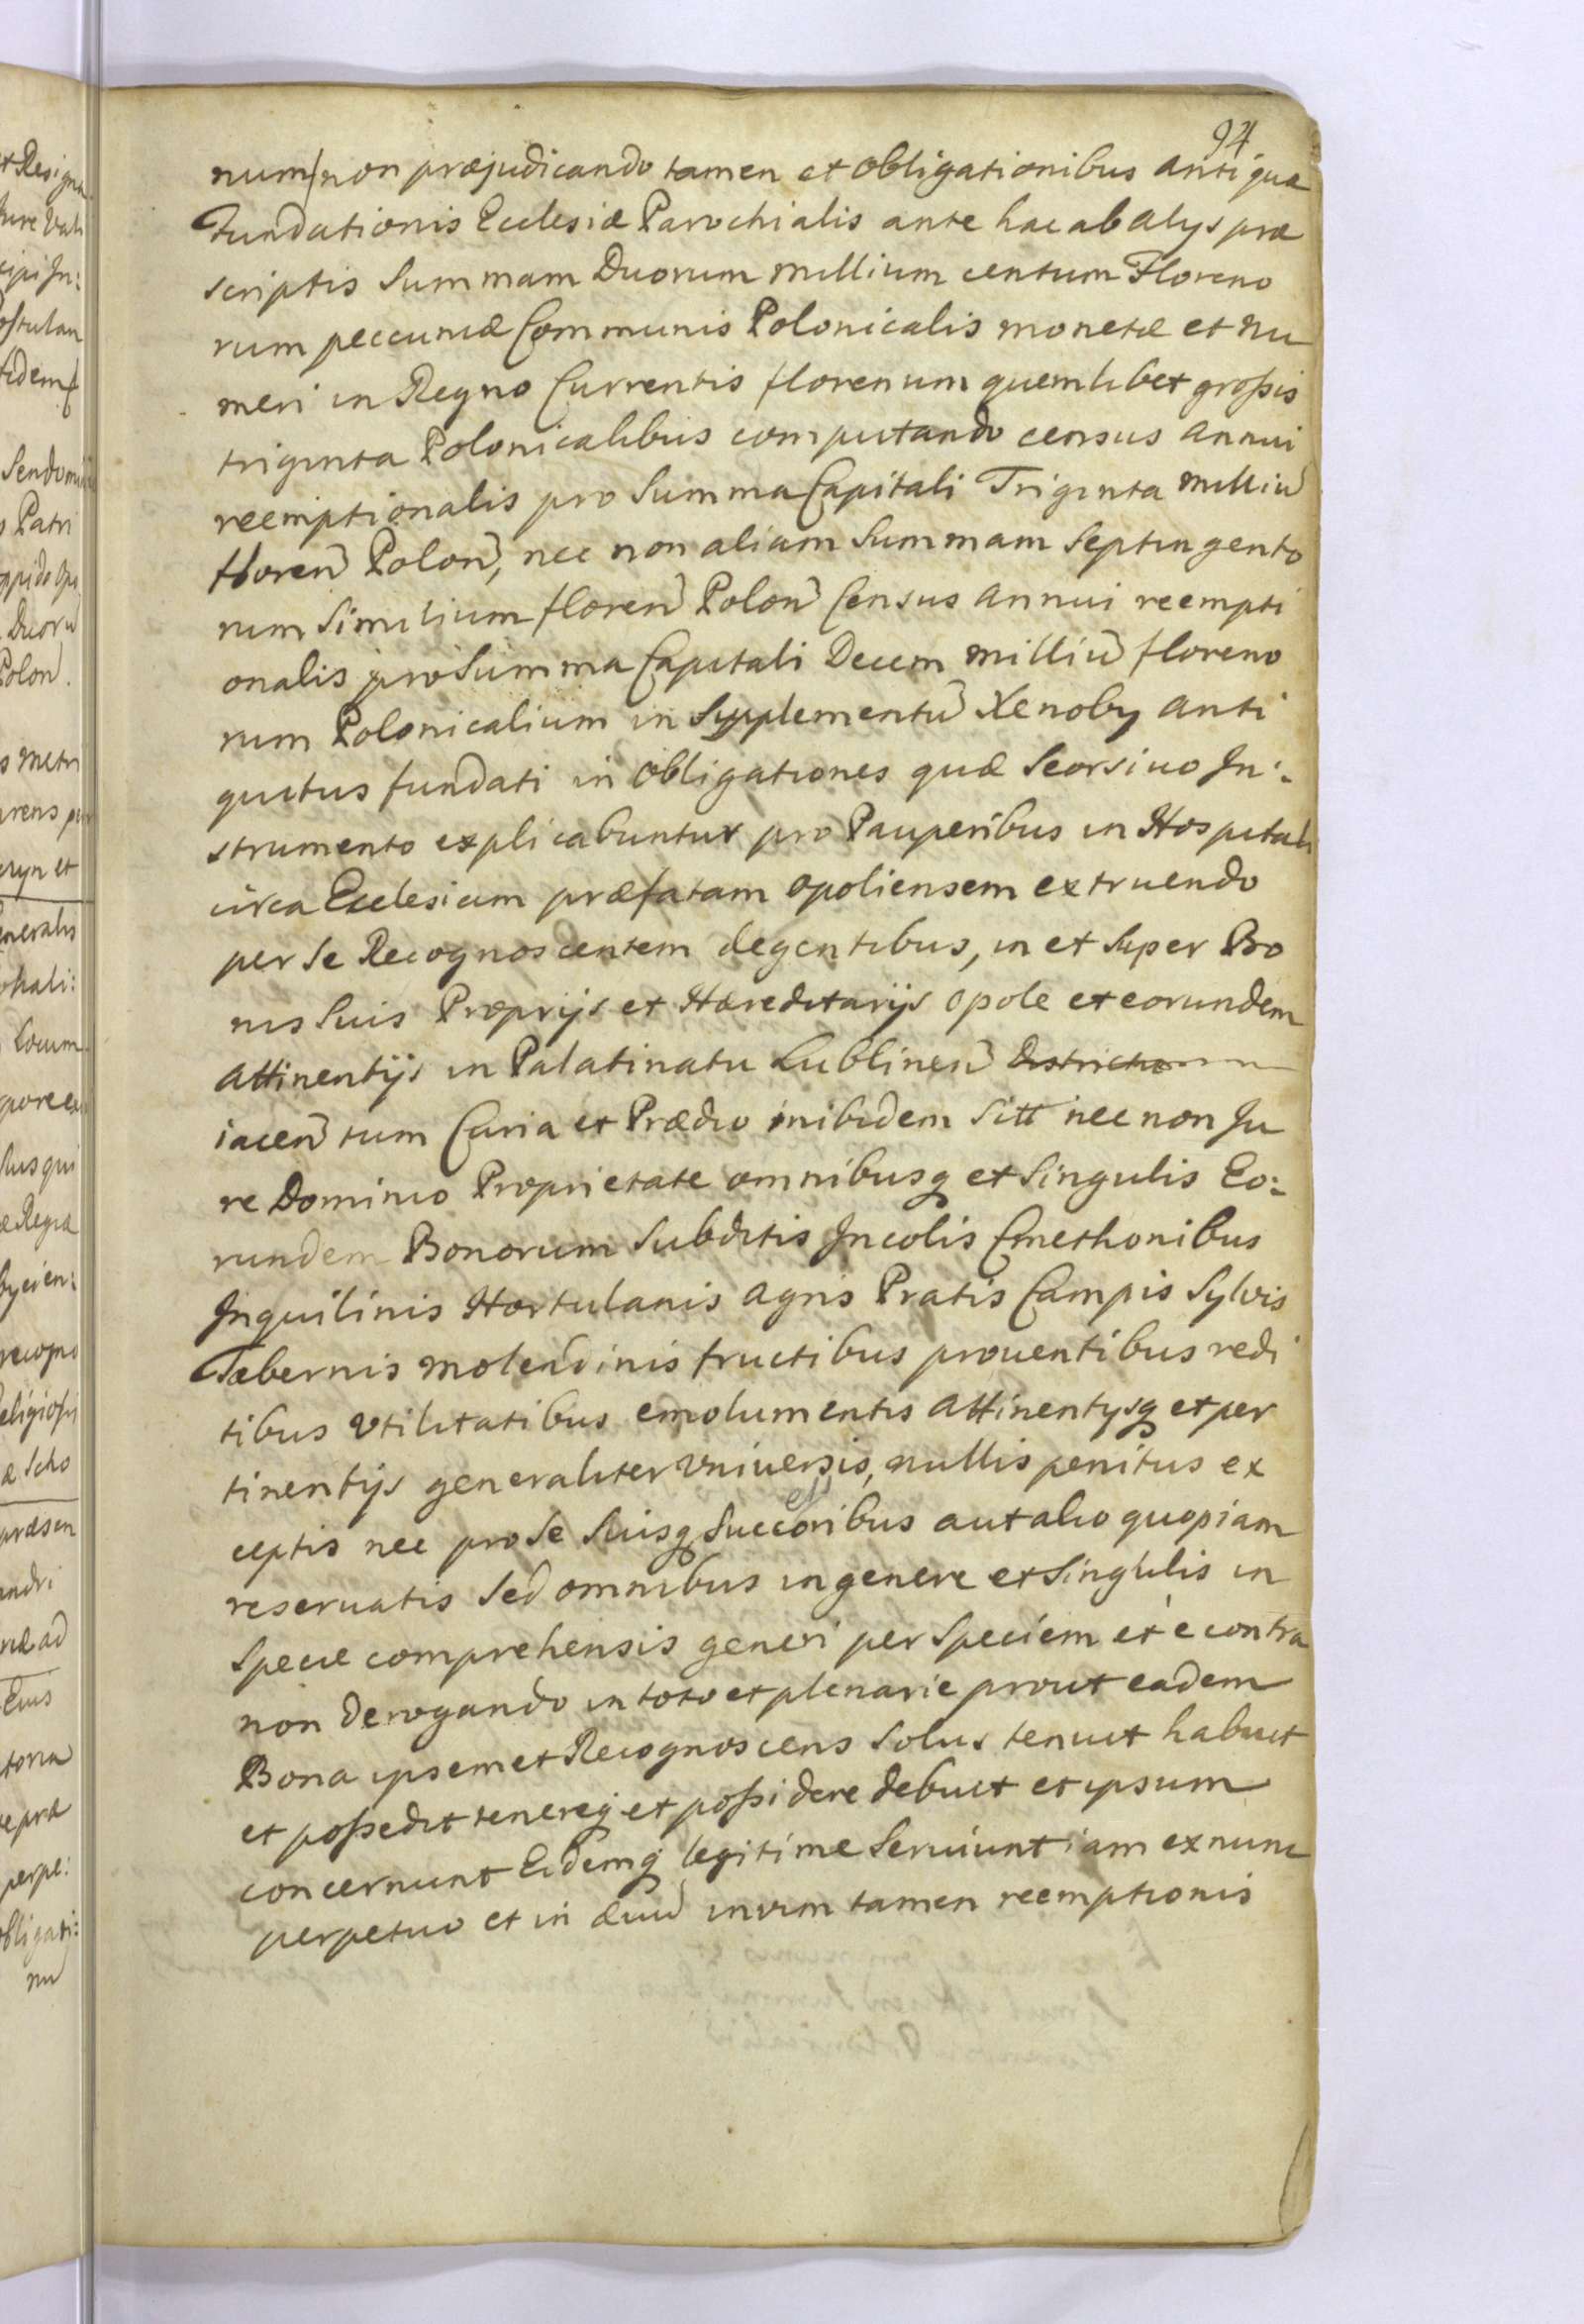 94
num/non præjudicando tamen et obligationibus antiquæ
Fundationis Ecclesiæ Parochialis ante hac ab alys præ
scriptis Summam Duorum millium centum Floreno
rum peccuniæ Communis Polonicalis monetæ et nu
meri in Regno Currentis florenum quemlibet grossis
triginta Polonicalibus computando census annui
reemptionalis pro Summa Capitali Triginta milliū
floren̄ Polon̄, nec non aliam Summam Septingento
rum Similium floren̄ Polon̄ Census annui reempti
onalis pro Summa Capitali Decem milliū floreno
rum Polonicalium in Supplementū Xenoby anti
quitus fundati in obligationes quæ Seorsiuo In:
strumento explicabuntur pro Pauperibus in Hospitali
circa Ecclesiam præfatam Opoliensem extruendo
per Se Recognoscentem degentibus, in et Super Bo
nis Suis Proprijs et Hæreditarijs Opole et eorundem
attinentijs in Palatinatu Lublinen̄ Districto
iacen̄ tum Curia et Prædio inibidem Sitt nec non Ju
re Dominio Proprietate omnibusq et Singulis Eo:
rundem Bonorum Subditis Incolis Cmethonibus
Inquilinis Hortulanis agris Pratis Campis Sylvis
Tabernis molendinis fructibus prouentibus redi
tibus Vtilitatibus emolumentis attinentysq et per
tinentijs generaliter Vniuersis, nullis penitus ex
ess
ceptis nec pro Se Suisq Succoribus aut alio quopiam
reseruatis Sed omnibus in genere et Singulis in
Specie comprehensis generi per Speciem et è contra
non derogando in toto et plenarie prout eadem
Bona ipsemet Recognoscens Solus tenuit habuit
et possedit tenereq et possidere debuit et ipsum
concernunt Eidemq legitime Seruiunt iam ex nunc
perpetuo et in æuū in vim tamen reemptionis